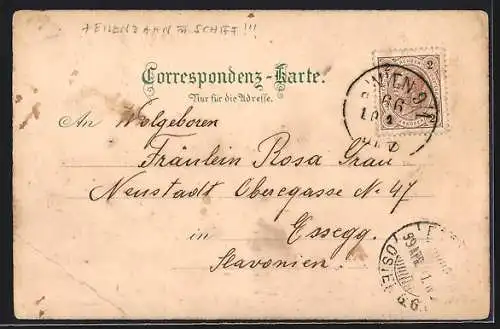 ZEILENBAHN M. SCHIFF!!!
Correspondenz-Karte.
Nur für die Adresse.
2
WIEN 3/
66
An Wolgeboren
Fräulein Rosa Grau
Neustadt Oberegasse No 47
in
Essegg.
Slavonien.
99